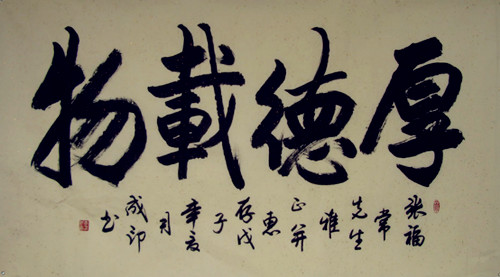 厚德載物
张福
常
先生
雅
正并
惠
存戊
子
辛亥
月
成印
书